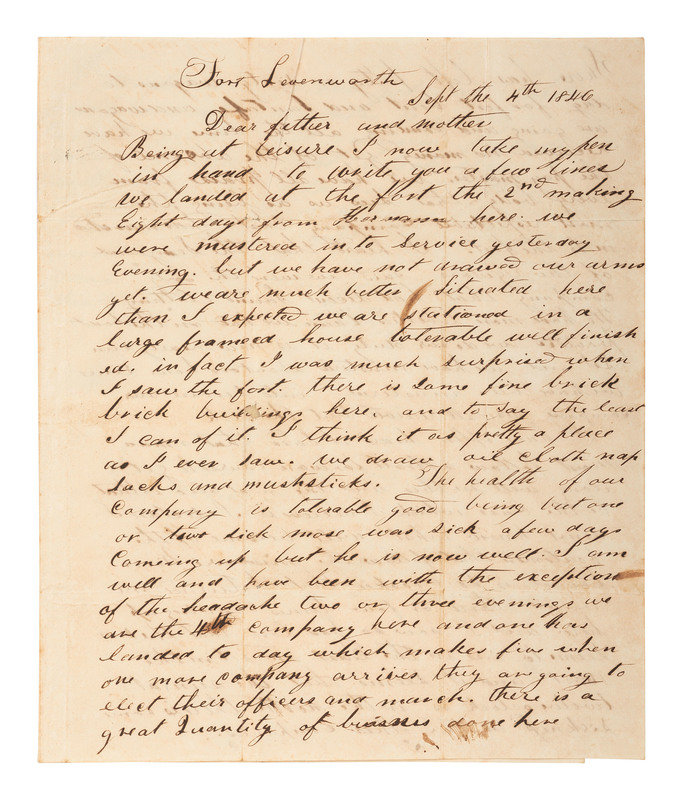 Fort Levenworth
Sept the 4th 1846
Dear father and mother
Being at leisure I now take my pen
in hand to write you a few lines
we landed at the fort the 2nd making
Eight days from Hermann here. we
were mustered in to Service yesterday
Evening. but we have not drawed our arms
yet. we are much better situated here
than I expected we are stationed in a
large framed house tolerable well finish
ed. in fact I was much surprised when
I saw the fort. there is some fine brick
brick buildings here, and to say the least
I can of it. I think it as pretty a place
as I ever saw. we draw oil cloth nap
sacks and mushsticks. The health of our
Company is tolerable good being but one
or two sick mose was sick a few days
Comeing up but he is now well. I am
well and have been with the exception
of the headache two or three evenings we
are the 4th company here and one has
landed to day which makes five when
one more company arrives they are going to
elect their officers and march. there is a
great Quantity of done here